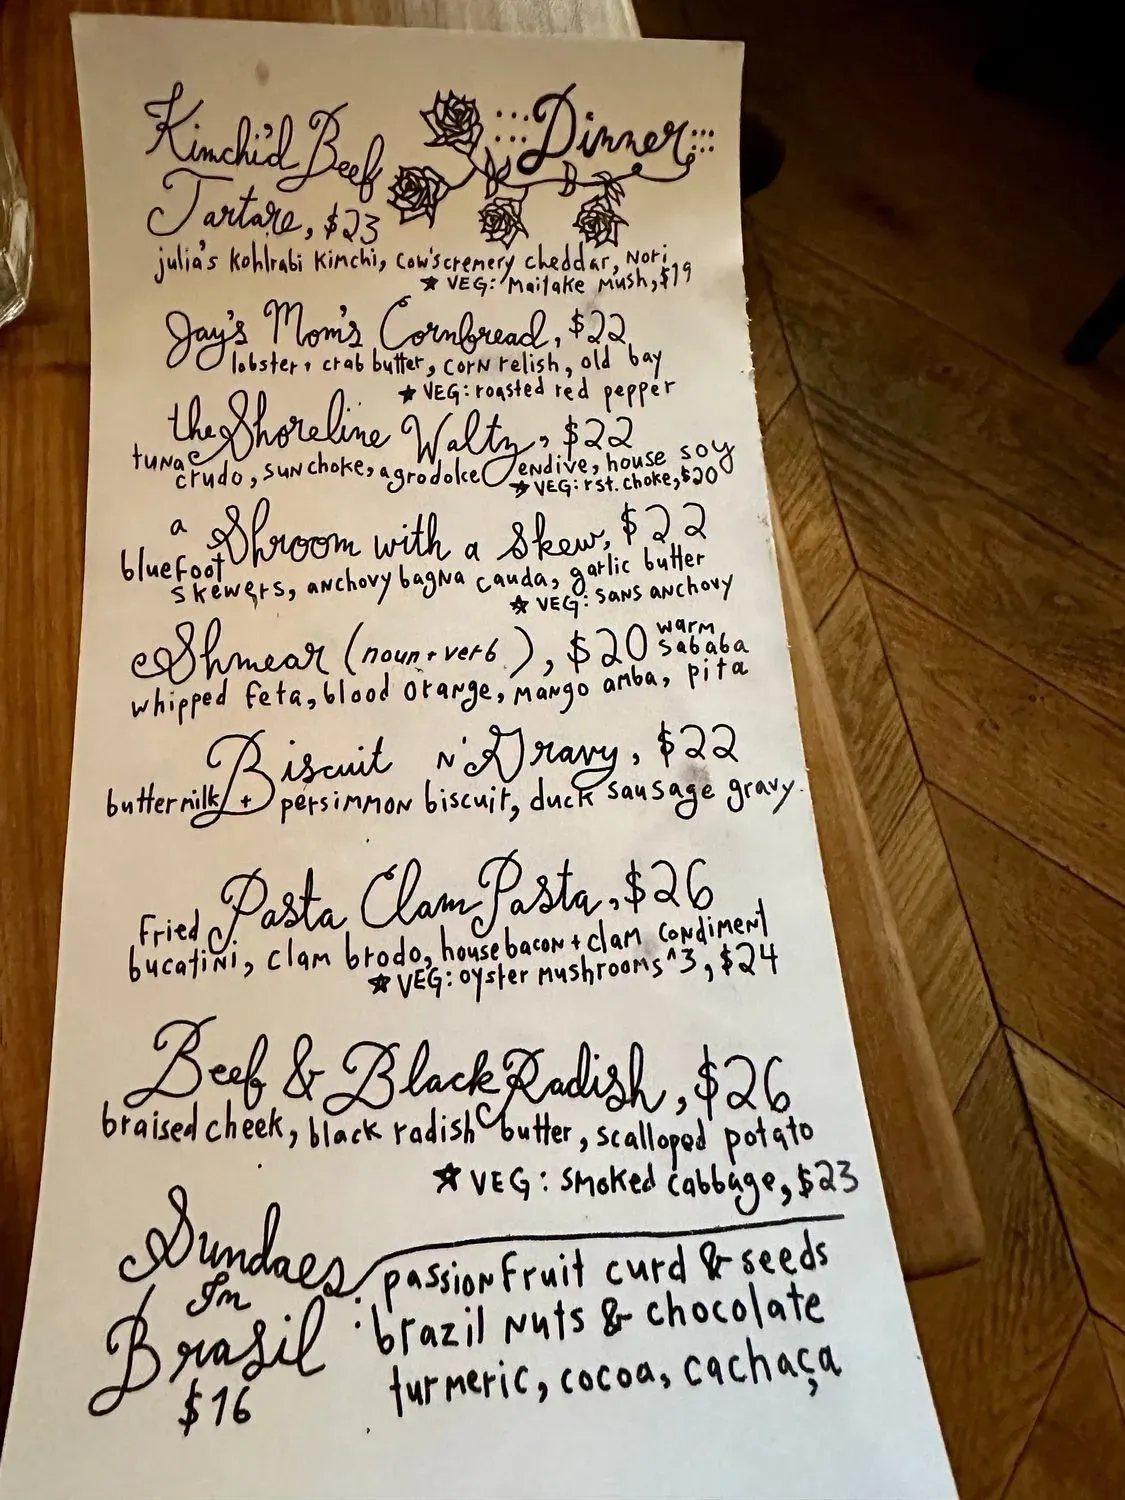 :::Dinner:::
Kimchi'd Beef
Tartare, $23
julia's kohlrabi kimchi, cow's cremery cheddar, nori
★ VEG: Maitake Mush, $19
Jay's Mom's Cornbread, $22
lobster + crab butter, corn relish, old bay
★ VEG: roasted red pepper
the Shoreline Waltz, $22
tuna crudo, sunchoke, agrodolce endive, house soy
★ VEG: rst. choke, $20
a Shroom with a Skew, $22
bluefoot skewers, anchovy bagna cauda, garlic butter
★ VEG: sans anchovy
Shmear (noun + verb), $20
whipped feta, blood orange, mango amba, warm sababa pita
Biscuit n' Gravy, $22
buttermilk + persimmon biscuit, duck sausage gravy
Pasta Clam Pasta, $26
fried bucatini, clam brodo, house bacon + clam condiment
★ VEG: oyster mushrooms^3, $24
Beef & Black Radish, $26
braised cheek, black radish butter, scalloped potato
★ VEG: smoked cabbage, $23
Sundaes
In
Brasil
$16
: passionfruit curd & seeds
brazil nuts & chocolate
turmeric, cocoa, cachaça